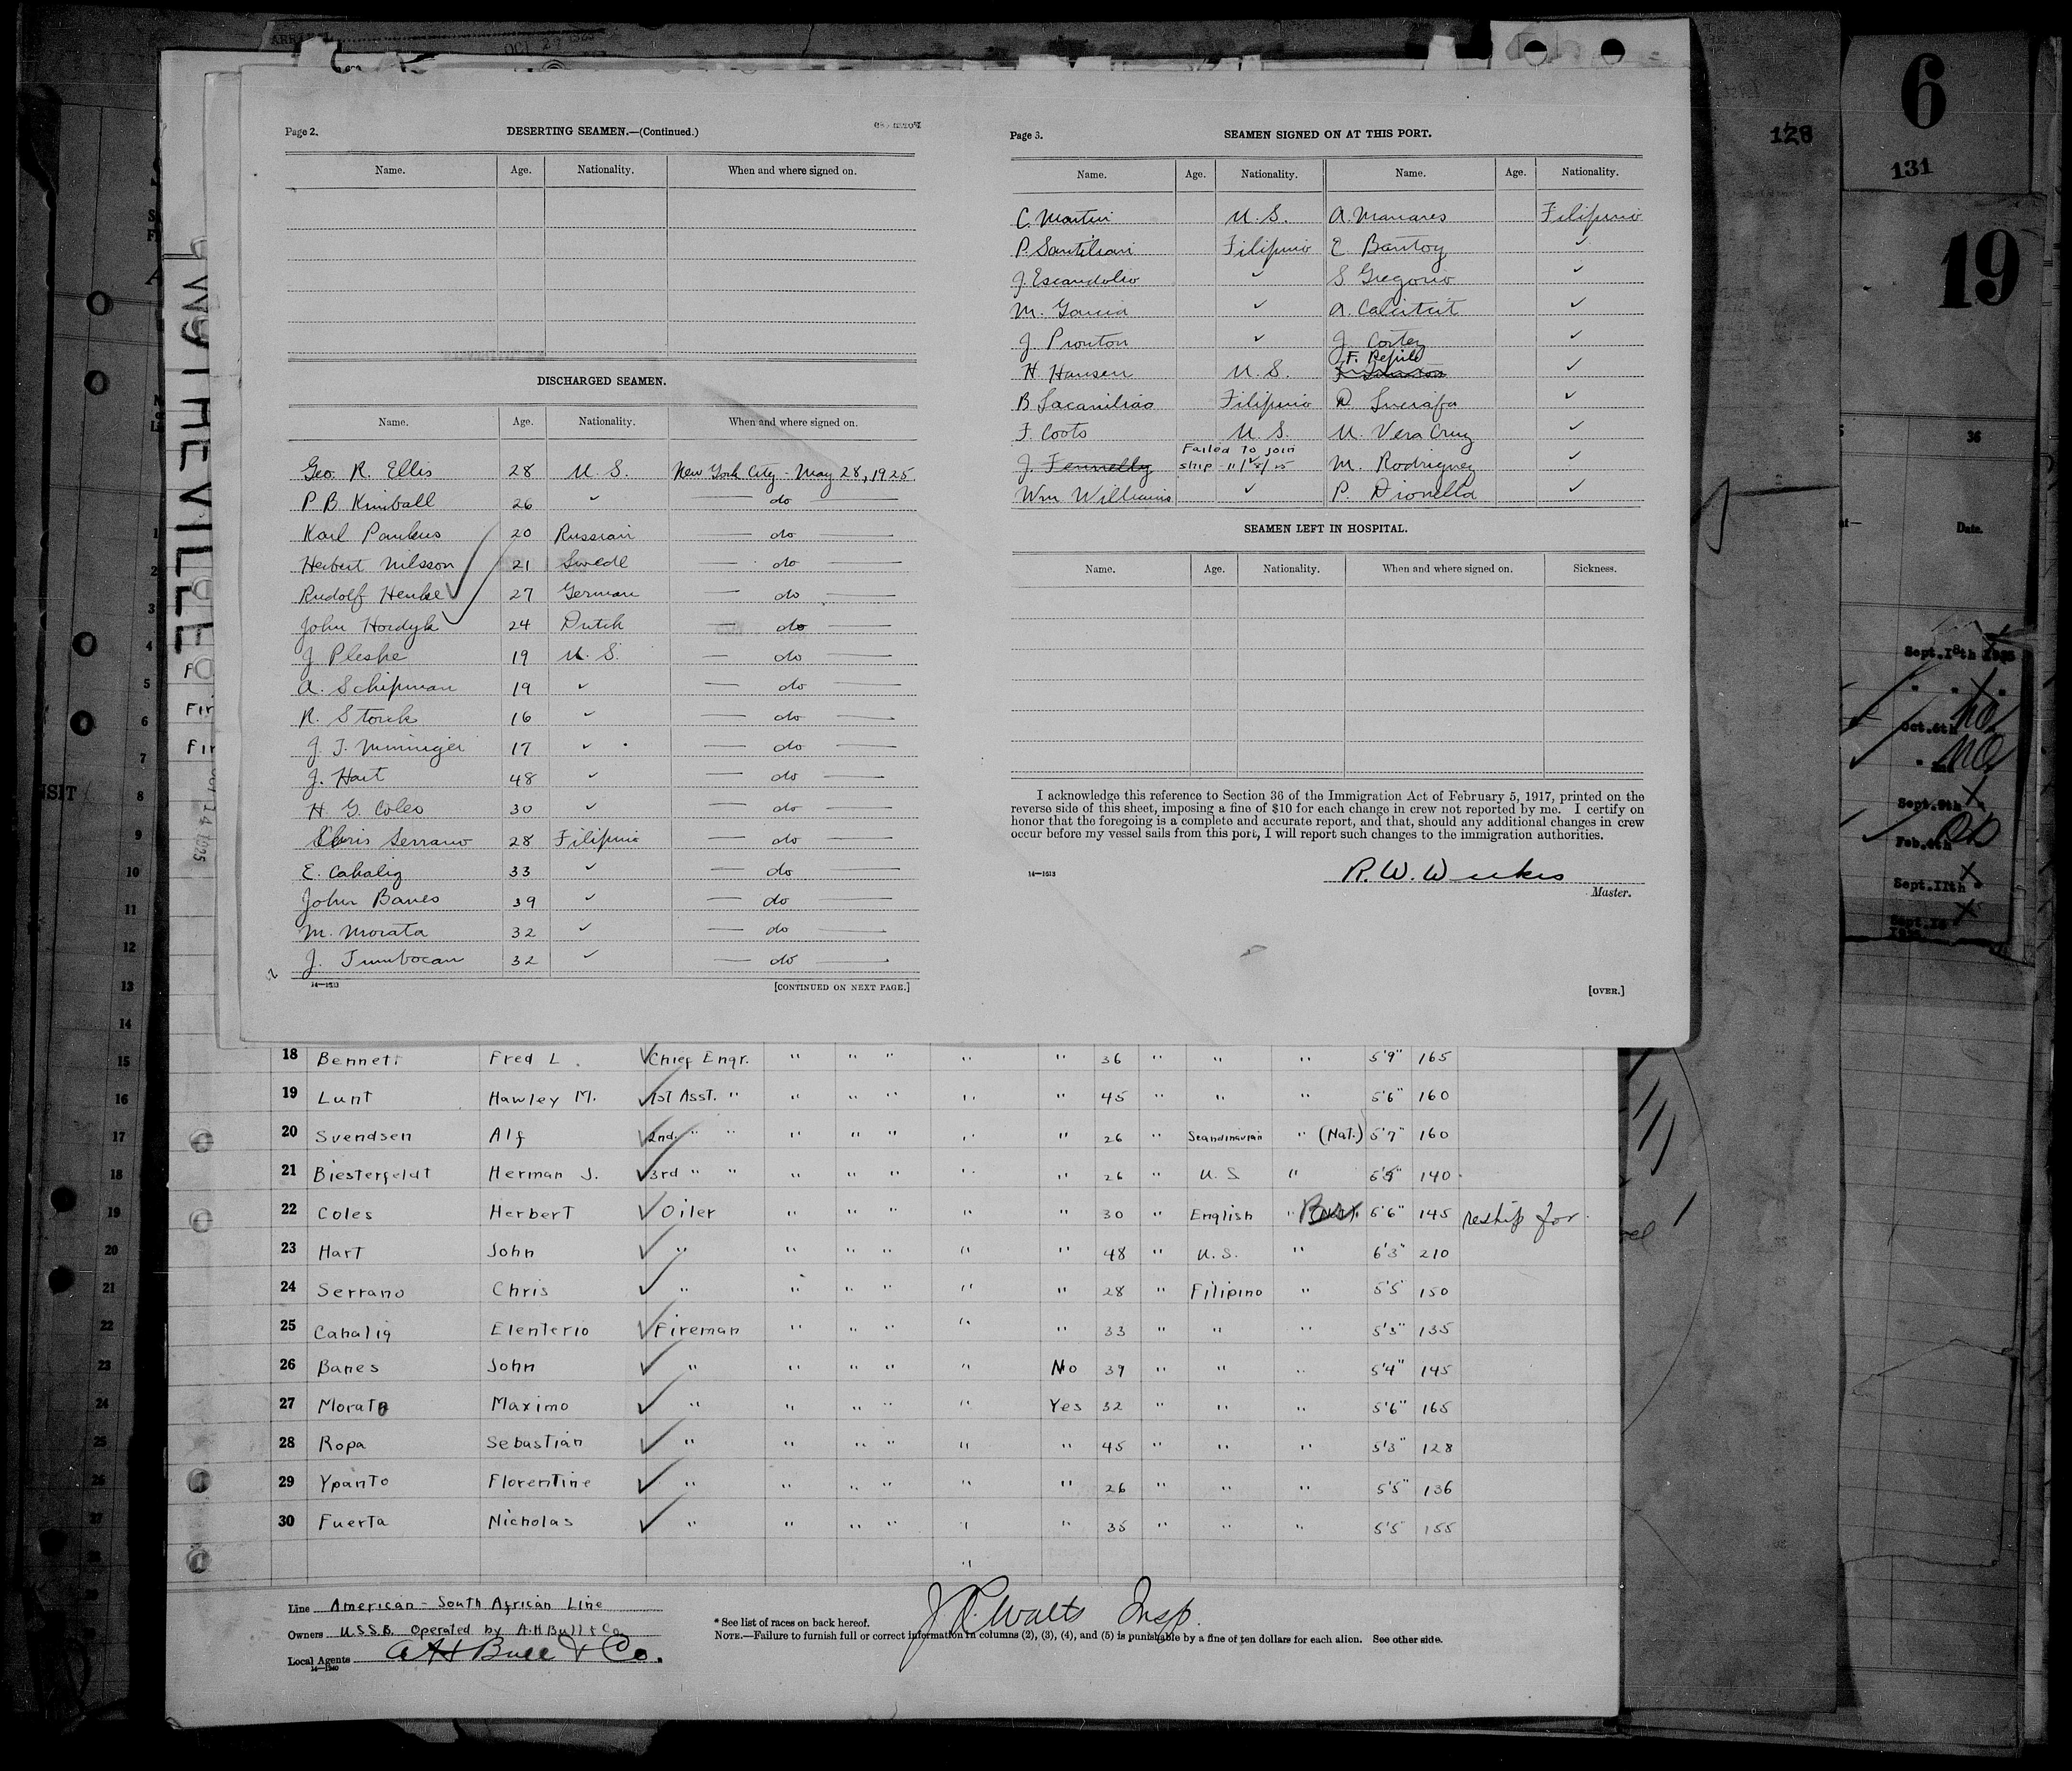 Page 2.
DESERTING SEAMEN.—(Continued.)
Name. Age. Nationality. When and where signed on.
DISCHARGED SEAMEN.
Name. Age. Nationality. When and where signed on.
Geo. R. Ellis 28 U. S. New York City - May 28, 1925.
P B Kimball 26 ✓ — do —
Karl Paukus 20 Russian — do —
Herbert Nilsson 21 Swede — do —
Rudolf Henke 27 German — do —
John Hordyk 24 Dutch — do —
J Pleshe 19 U. S. — do —
A. Schipman 19 ✓ — do —
R. Storck 16 ✓ — do —
J. J. 17 ✓ — do —
J. Hart 48 ✓ — do —
H. G. Coles 30 ✓ — do —
Chris Serrano 28 Filipino — do —
E. Cahalig 33 ✓ — do —
John Banes 39 ✓ — do —
M. Morata 32 ✓ — do —
J. Tumbocan 32 ✓ — do —
14—1513
[CONTINUED ON NEXT PAGE.]
Page 3.
SEAMEN SIGNED ON AT THIS PORT.
Name. Age. Nationality. Name. Age. Nationality.
C. Martin U. S. A. Manares Filipino
P. Santilian Filipino E. Bantoy ✓
J. Escandolio ✓ S. Gregorio ✓
M. Garcia ✓ A. Calutut ✓
J. Pronton ✓ J. Cortez ✓
F. Repild
H. Hansen U. S. ✓
B Lacaniliao Filipino ✓
F. Coots U. S. U. Vera Cruz ✓
Failed to join
J. Fennelly ship 11/ M. Rodriguez ✓
Wm Williams ✓ P. Dionella ✓
SEAMEN LEFT IN HOSPITAL.
Name. Age. Nationality. When and where signed on. Sickness.
I acknowledge this reference to Section 36 of the Immigration Act of February 5, 1917, printed on the
reverse side of this sheet, imposing a fine of $10 for each change in crew not reported by me. I certify on
honor that the foregoing is a complete and accurate report, and that, should any additional changes in crew
occur before my vessel sails from this port, I will report such changes to the immigration authorities.
14—1513
R. W. Weekes
Master.
[OVER.]
18 Bennett Fred L. ✓ Chief Engr. " " " " " 36 " " " 5'9" 165
19 Lunt Hawley M. ✓ 1st Asst. " " " " " " 45 " " " 5'6" 160
20 Svendsen Alf ✓ 2nd " " " " " " " 26 " Scandinavian " (Nat.) 5'7" 160
21 Biesterfeldt Herman J. ✓ 3rd " " " " " " " 26 " U. S " 140
22 Coles Herbert ✓ Oiler " " " " " 30 " English " 5'6" 145 reship for
23 Hart John ✓ " " " " " " 48 " U. S. " 6'3" 210
24 Serrano Chris ✓ " " " " " " 28 " Filipino " 5'5 150
25 Cahalig Elenterio ✓ Fireman " " " " " 33 " " " 5'3" 135
26 Banes John ✓ " " " " " No 39 " " " 5'4" 145
27 Morato Maximo ✓ " " " " " Yes 32 " " " 5'6" 165
28 Ropa Sebastian ✓ " " " " " " 45 " " " 5'3" 128
29 Ypanto Florentine ✓ " " " " " " 26 " " " 5'5" 136
30 Fuerta Nicholas ✓ " " " " " " 35 " " " 5'5 155
Line American - South African Line
Owners U.S.S.B. Operated by A.H Bull & Co
Local Agents A H Bull & Co.
14—1240
* See list of races on back hereof.
NOTE.—Failure to furnish full or correct information in columns (2), (3), (4), and (5) is punishable by a fine of ten dollars for each alien. See other side.
J. C. Walts Insp.
WYTHEVILLE
OCT 29
128
6
131
19
36
Date.
Sept.18th
Oct.6th
no
Sept.9th
Feb.4th
Sept.11th